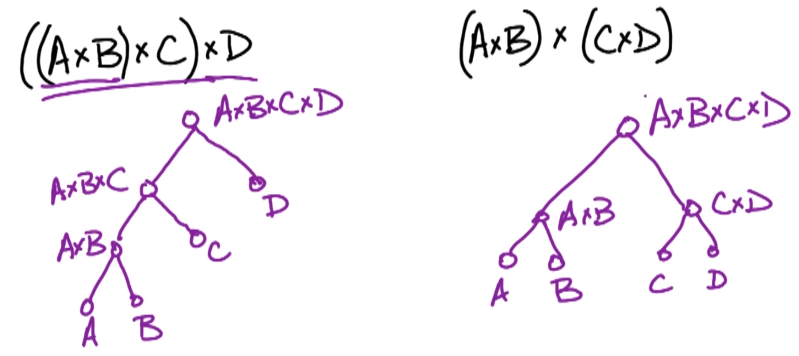 ((A×B)×C)×D
A×B×C×D
A×B×C
D
A×B
C
A
B
(A×B) × (C×D)
A×B×C×D
A×B
C×D
A
B
C
D